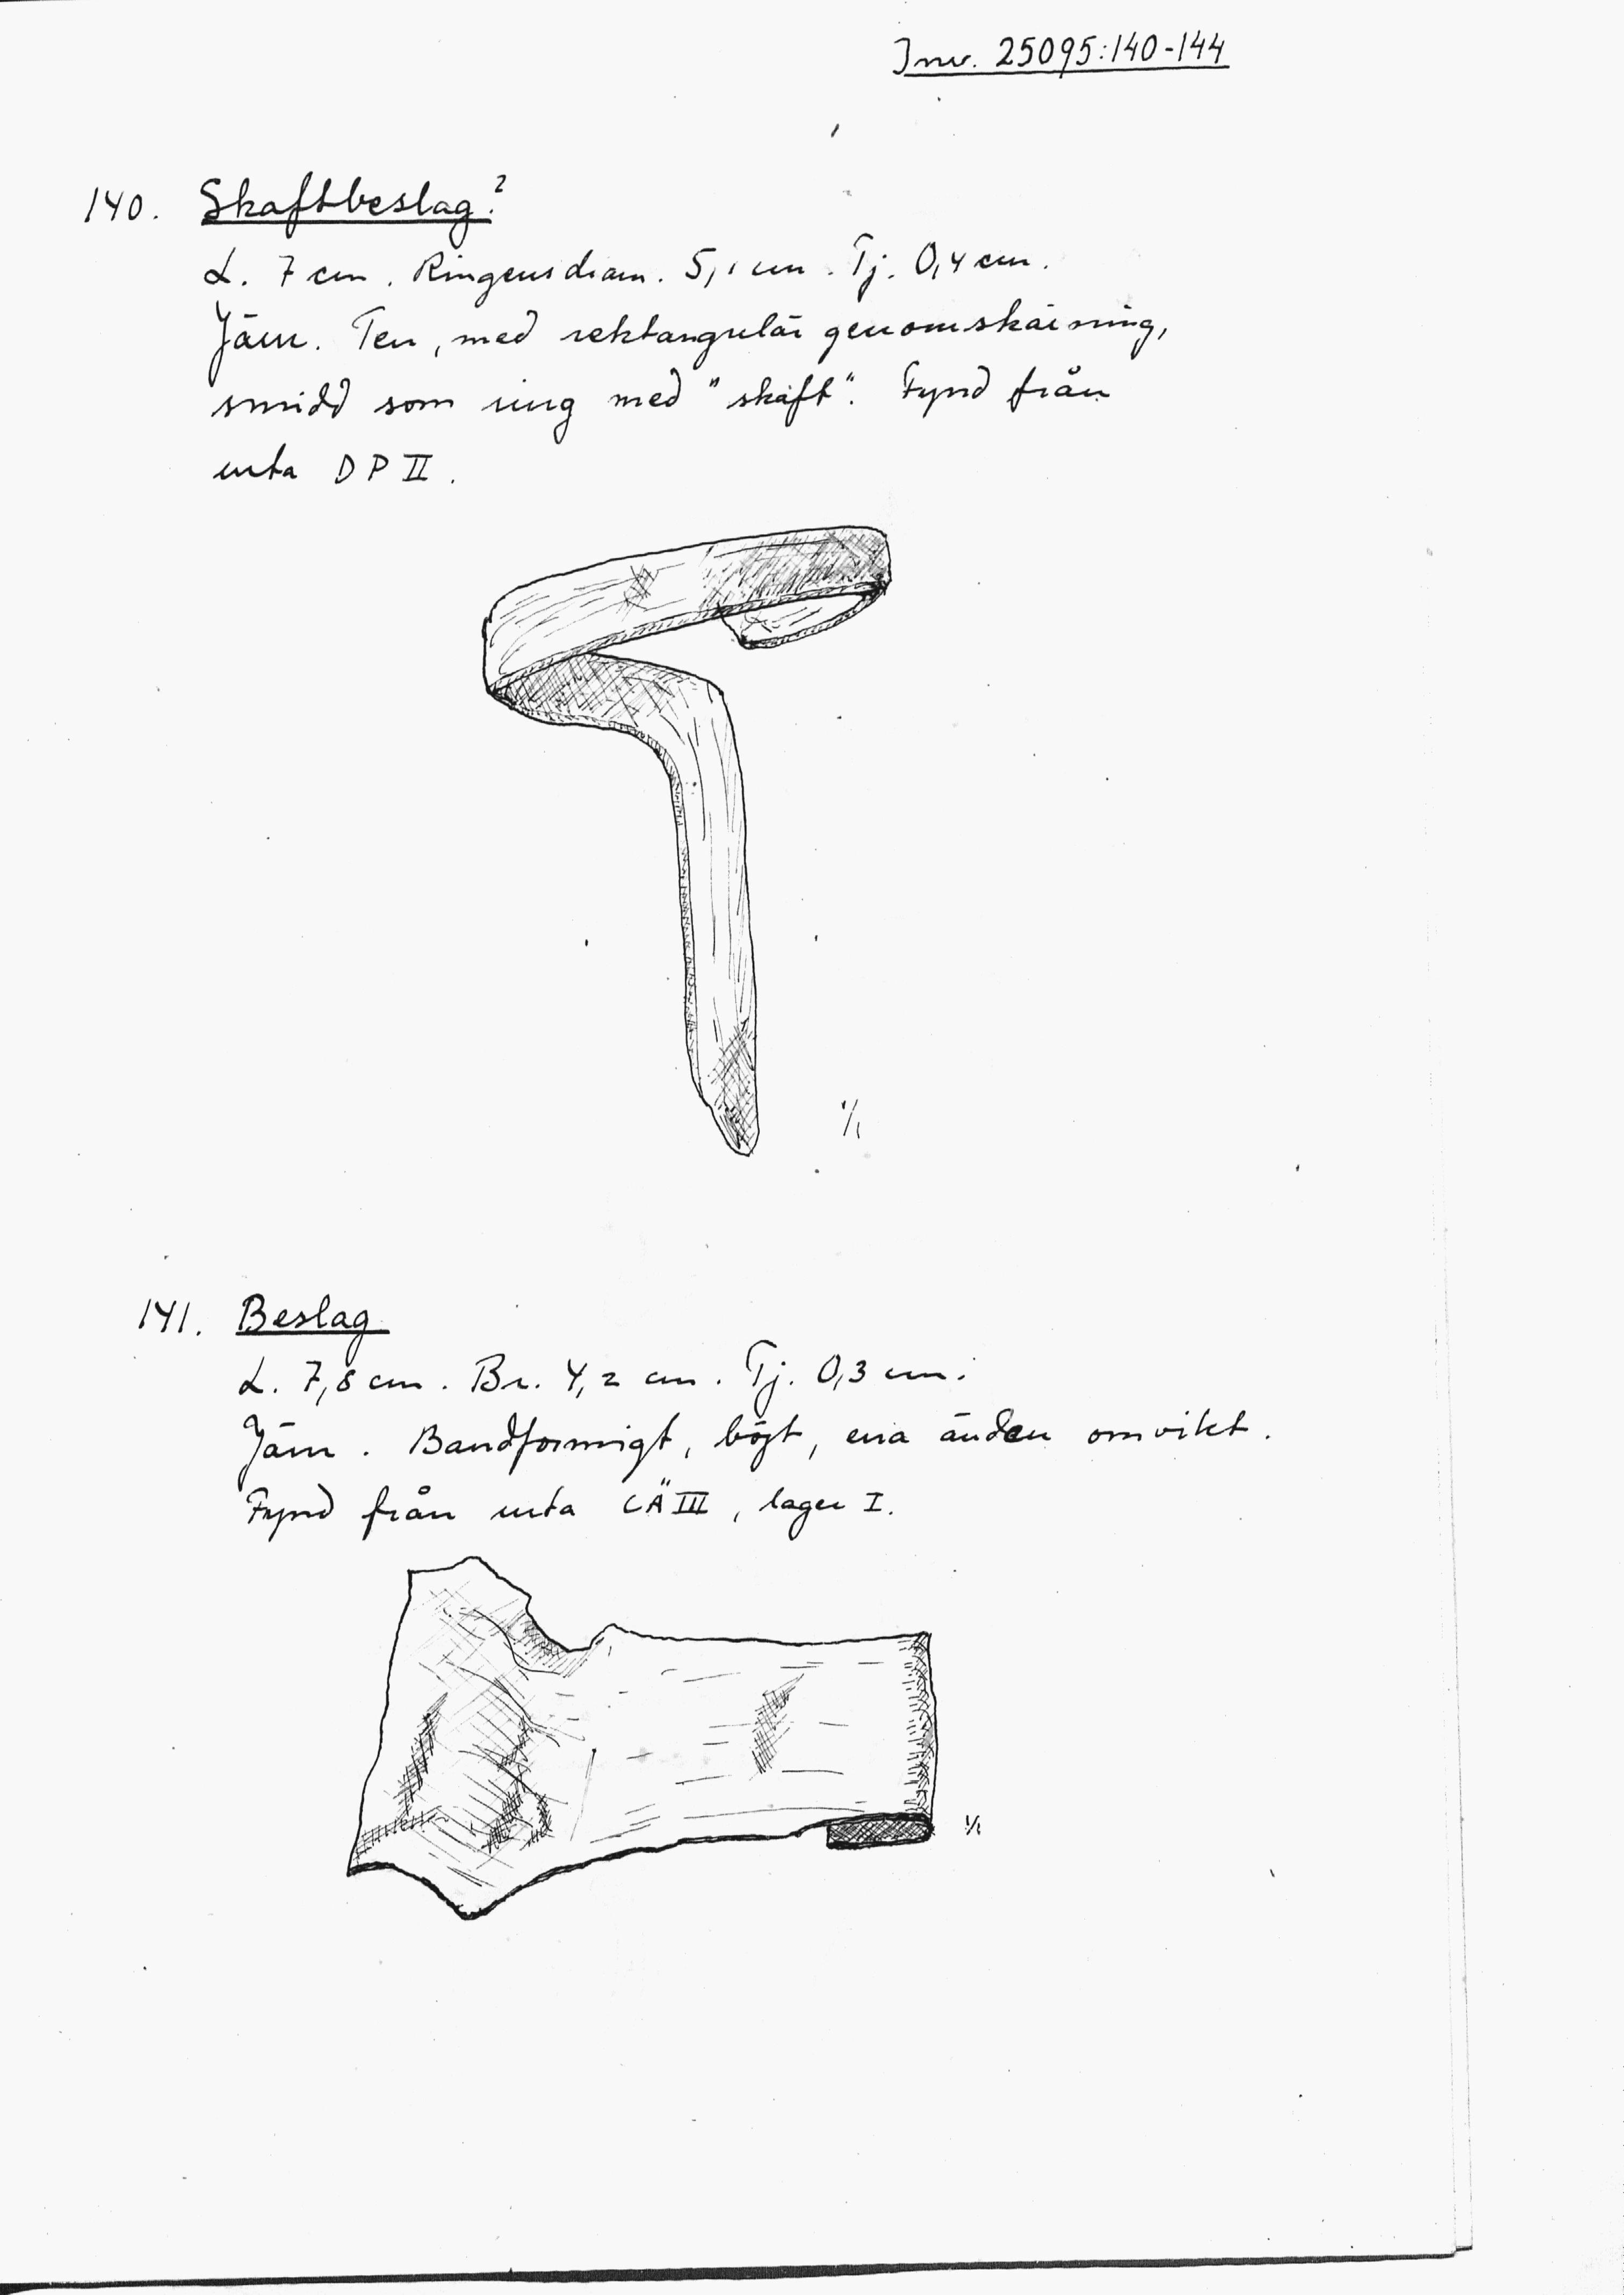 Inv. 25095:140-144
140. Skaftbeslag?
L. 7 cm. Ringens diam. 5,1 cm. Tj. 0,4 cm.
Järn. Ten, med rektangulär genomskärning,
smidd som ring med "skaft". Fynd från
ruta DP II.
1/1
141. Beslag
L. 7,8 cm. Br. 4,2 cm. Tj. 0,3 cm.
Järn. Bandformigt, böjt, ena änden omvikt.
Fynd från ruta CÄ III, lager I.
1/1